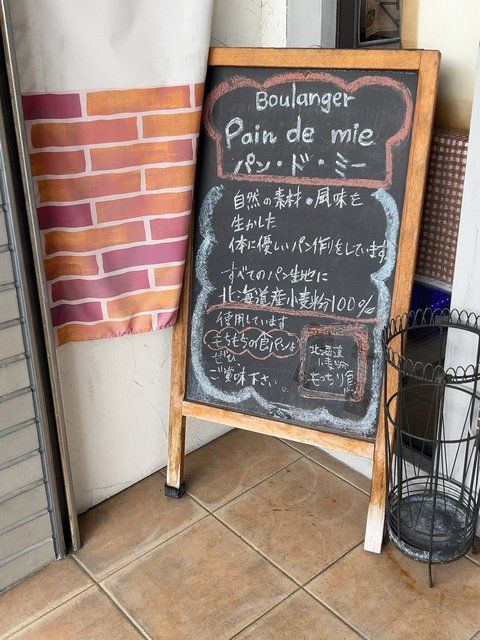 Boulanger
Pain de mie
パン・ド・ミー
自然の素材・風味を
生かした
体に優しいパン作りをしています
すべてのパン生地に
北海道産小麦粉100%
使用しています
もちもちの食パンは
ぜひ
ご賞味下さい
北海道
小麦粉
もっちり食